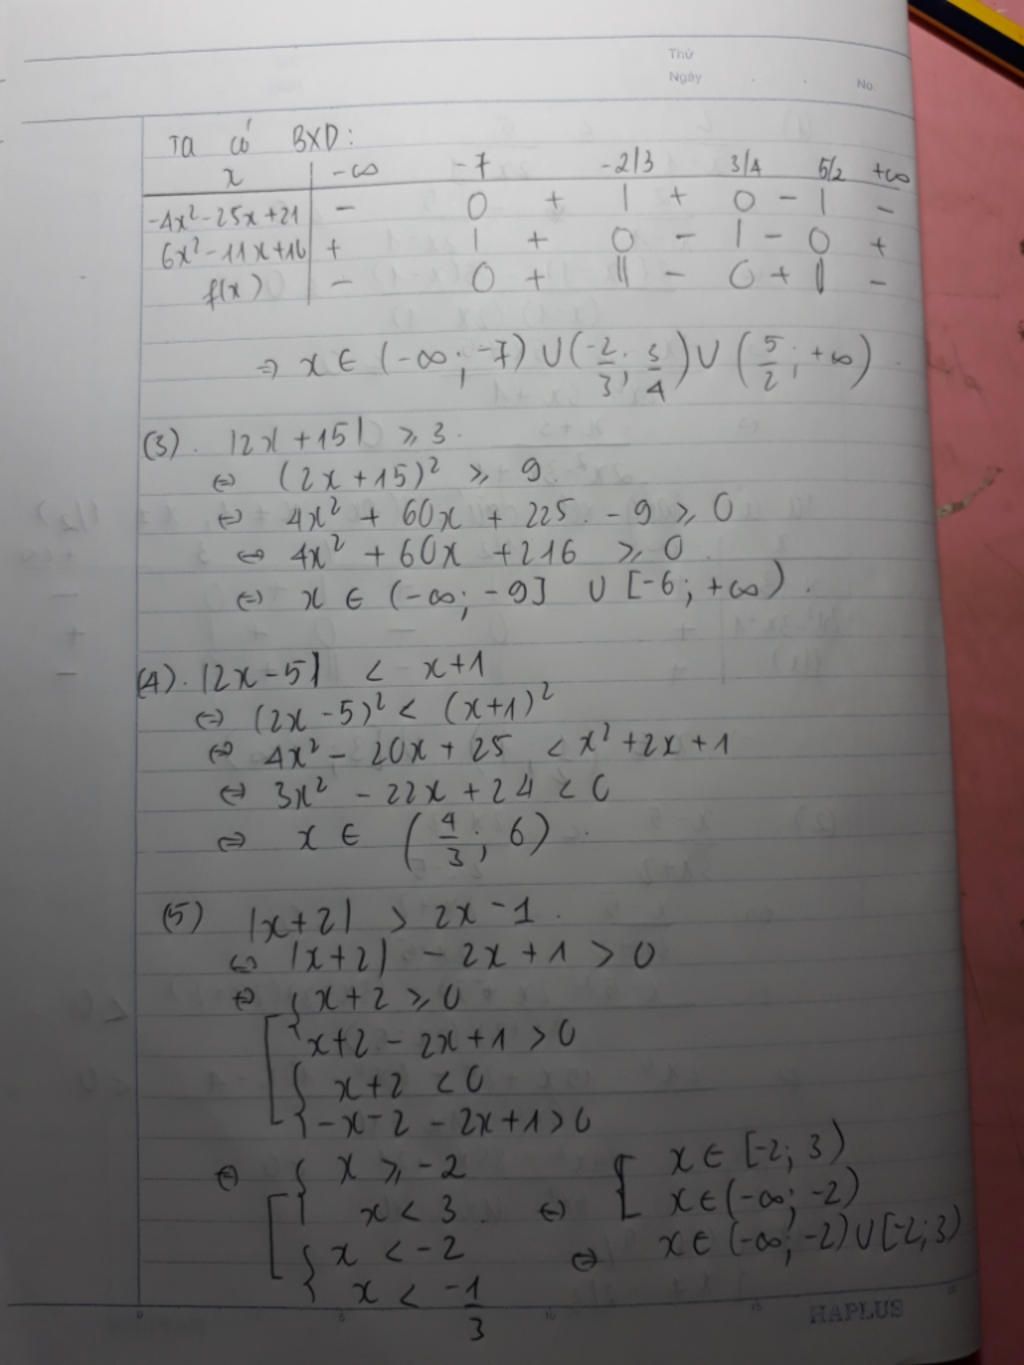 Thứ
Ngày . . No.
Ta có BXD:
x | -∞ -7 -2/3 3/4 5/2 +∞
-4x²-25x+21 | - 0 + | + 0 - | -
6x²-11x+16 | + | + 0 - | - 0 +
f(x) | - 0 + || - 0 + || -
⇒ x ∈ (-∞; -7) ∪ (-2/3; 3/4) ∪ (5/2; +∞).
(3). |2x+15| ⩾ 3.
⇔ (2x+15)² ⩾ 9.
⇔ 4x² + 60x + 225 - 9 ⩾ 0
⇔ 4x² + 60x + 216 ⩾ 0.
⇔ x ∈ (-∞; -9] ∪ [-6; +∞).
(4). |2x-5| < x+1
⇔ (2x-5)² < (x+1)²
⇔ 4x² - 20x + 25 < x²+2x+1
⇔ 3x² - 22x + 24 < 0
⇔ x ∈ (4/3; 6).
(5) |x+2| > 2x-1.
⇔ |x+2| - 2x+1 > 0
⇔ [ { x+2 ⩾ 0
x+2 - 2x+1 > 0
{ x+2 < 0
-x-2 - 2x+1 > 0
⇔ [ { x ⩾ -2 [ x ∈ [-2; 3)
x < 3 ⇔ x ∈ (-∞; -2)
{ x < -2 ⇔ x ∈ (-∞; -2) ∪ [-2; 3)
x < -1/3
0 5 10 15
HAPLUS